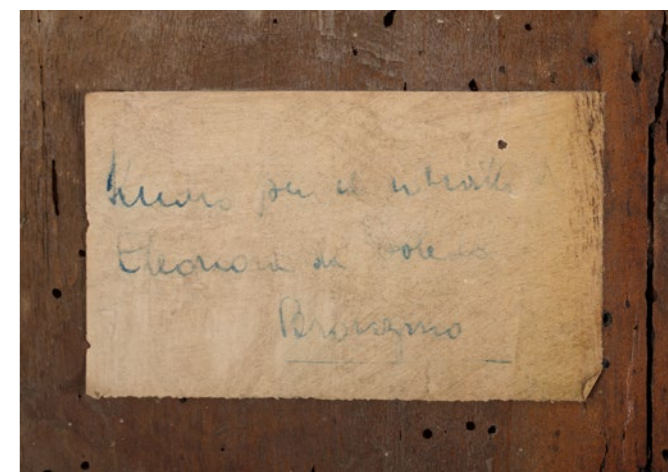 per il ritratto
Eleonora di Toledo
Bronzino